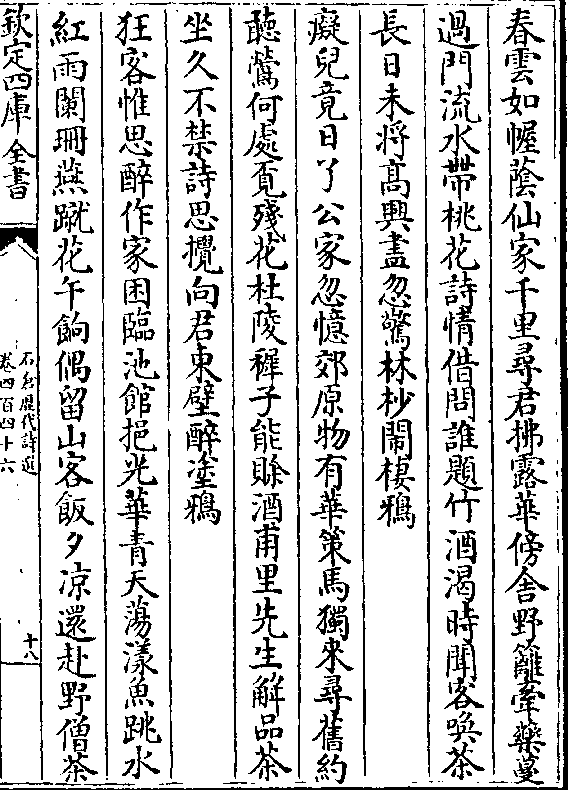 春雲如幄蔭仙家千里尋君拂露華傍舍野籬牽藥蔓
過門流水帶桃花詩情借問誰題竹酒渴時聞客喚茶
長日未將高興盡忽驚林杪鬧棲鴉
癡兒竟日了公家忽憶郊原物有華策馬獨來尋舊約
聽鶯何處覔殘花杜陵穉子能賒酒甫里先生解品茶
坐久不禁詩思攪向君東壁醉塗鴉
狂客惟思醉作家困臨池館挹光華青天蕩漾魚跳水
紅雨闌珊燕蹴花午餉偶留山客飯夕凉還赴野僧茶
欽定四庫全書
石倉歷代詩選
卷四百四十六
十八